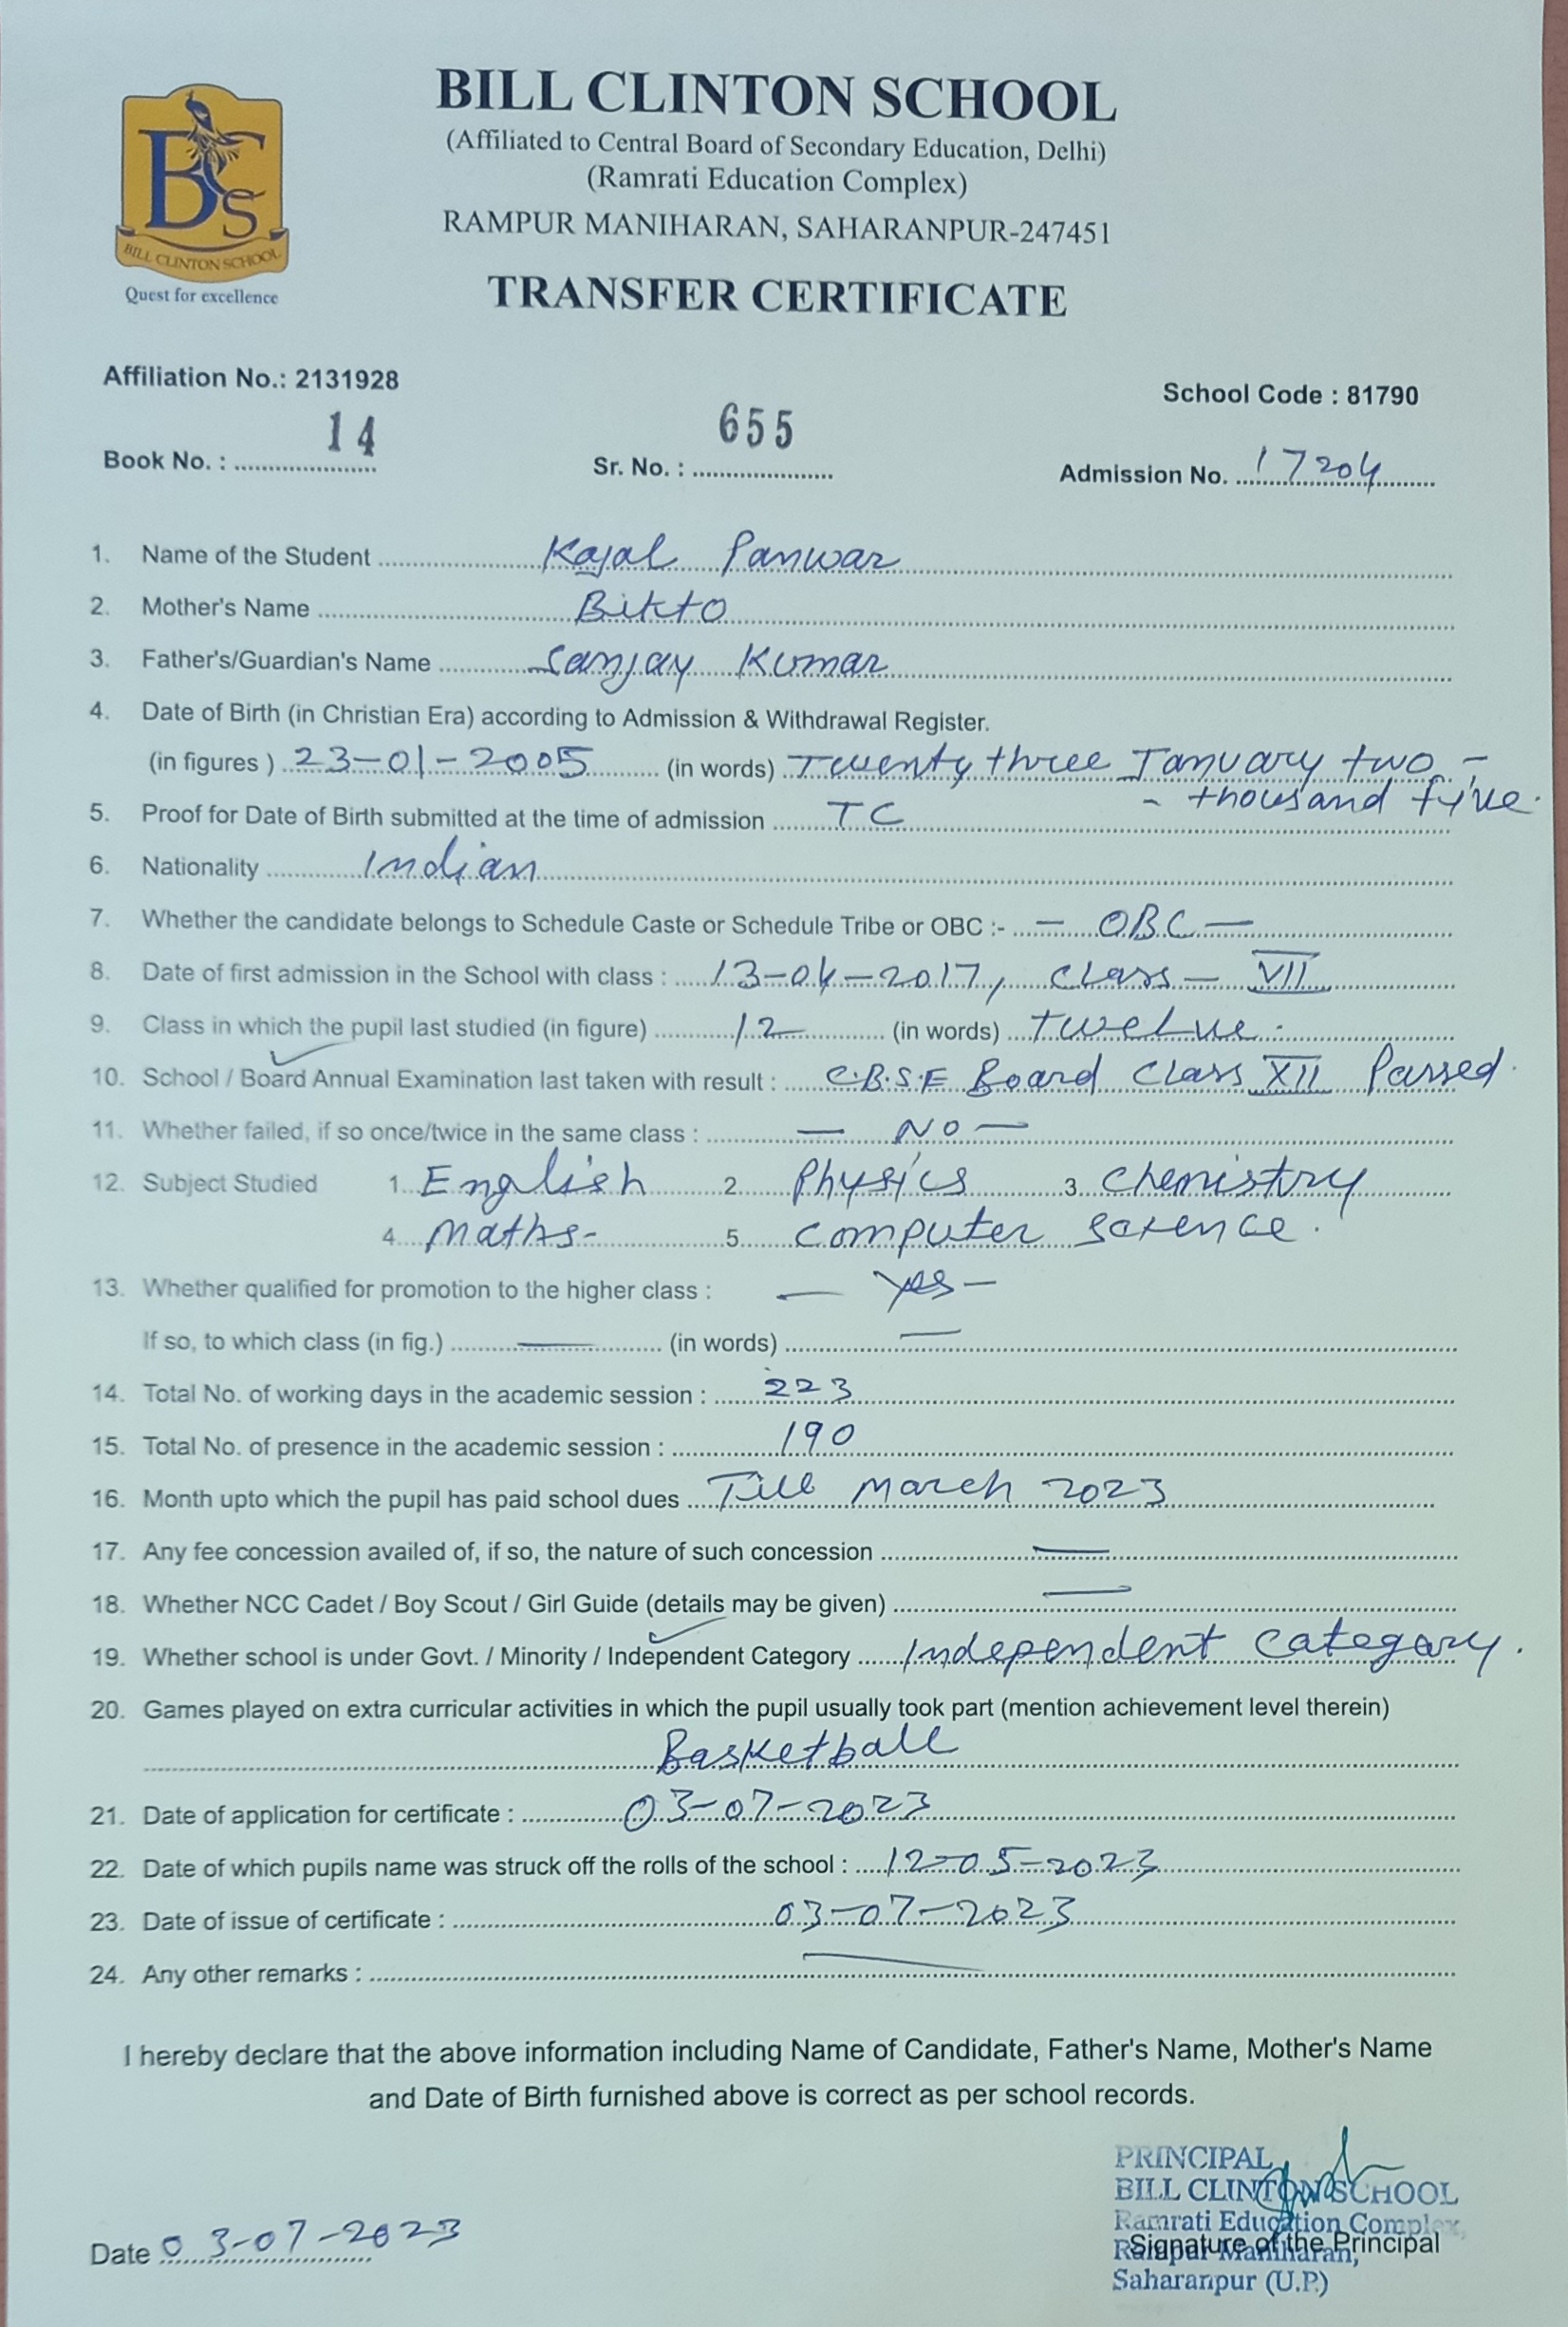 BCS
BILL CLINTON SCHOOL
Quest for excellence
BILL CLINTON SCHOOL
(Affiliated to Central Board of Secondary Education, Delhi)
(Ramrati Education Complex)
RAMPUR MANIHARAN, SAHARANPUR-247451
TRANSFER CERTIFICATE
Affiliation No.: 2131928
School Code : 81790
Book No. : 14 Sr. No. : 655 Admission No. 17204
1. Name of the Student Kajal Panwar
2. Mother's Name Bikto
3. Father's/Guardian's Name Sanjay Kumar
4. Date of Birth (in Christian Era) according to Admission & Withdrawal Register.
(in figures ) 23-01-2005 (in words) Twenty three January two -
- thousand five.
5. Proof for Date of Birth submitted at the time of admission TC
6. Nationality Indian
7. Whether the candidate belongs to Schedule Caste or Schedule Tribe or OBC :- — OBC —
8. Date of first admission in the School with class : 13-04-2017, class - VII
9. Class in which the pupil last studied (in figure) 12 (in words) Twelve.
10. School / Board Annual Examination last taken with result : C.B.S.E Board Class XII Passed.
11. Whether failed, if so once/twice in the same class : — NO —
12. Subject Studied 1. English 2. Physics 3. Chemistry
4. Maths- 5. Computer Science.
13. Whether qualified for promotion to the higher class : — Yes —
If so, to which class (in fig.) — (in words) —
14. Total No. of working days in the academic session : 223
15. Total No. of presence in the academic session : 190
16. Month upto which the pupil has paid school dues Till March 2023
17. Any fee concession availed of, if so, the nature of such concession —
18. Whether NCC Cadet / Boy Scout / Girl Guide (details may be given) —
19. Whether school is under Govt. / Minority / Independent Category Independent Category.
20. Games played on extra curricular activities in which the pupil usually took part (mention achievement level therein)
Basketball
21. Date of application for certificate : 03-07-2023
22. Date of which pupils name was struck off the rolls of the school : 12-05-2023
23. Date of issue of certificate : 03-07-2023
24. Any other remarks : —
I hereby declare that the above information including Name of Candidate, Father's Name, Mother's Name
and Date of Birth furnished above is correct as per school records.
PRINCIPAL
BILL CLINTON SCHOOL
Ramrati Education Complex,
Rampur Maniharan,
Saharanpur (U.P.)
Date 03-07-2023
Signature of the Principal